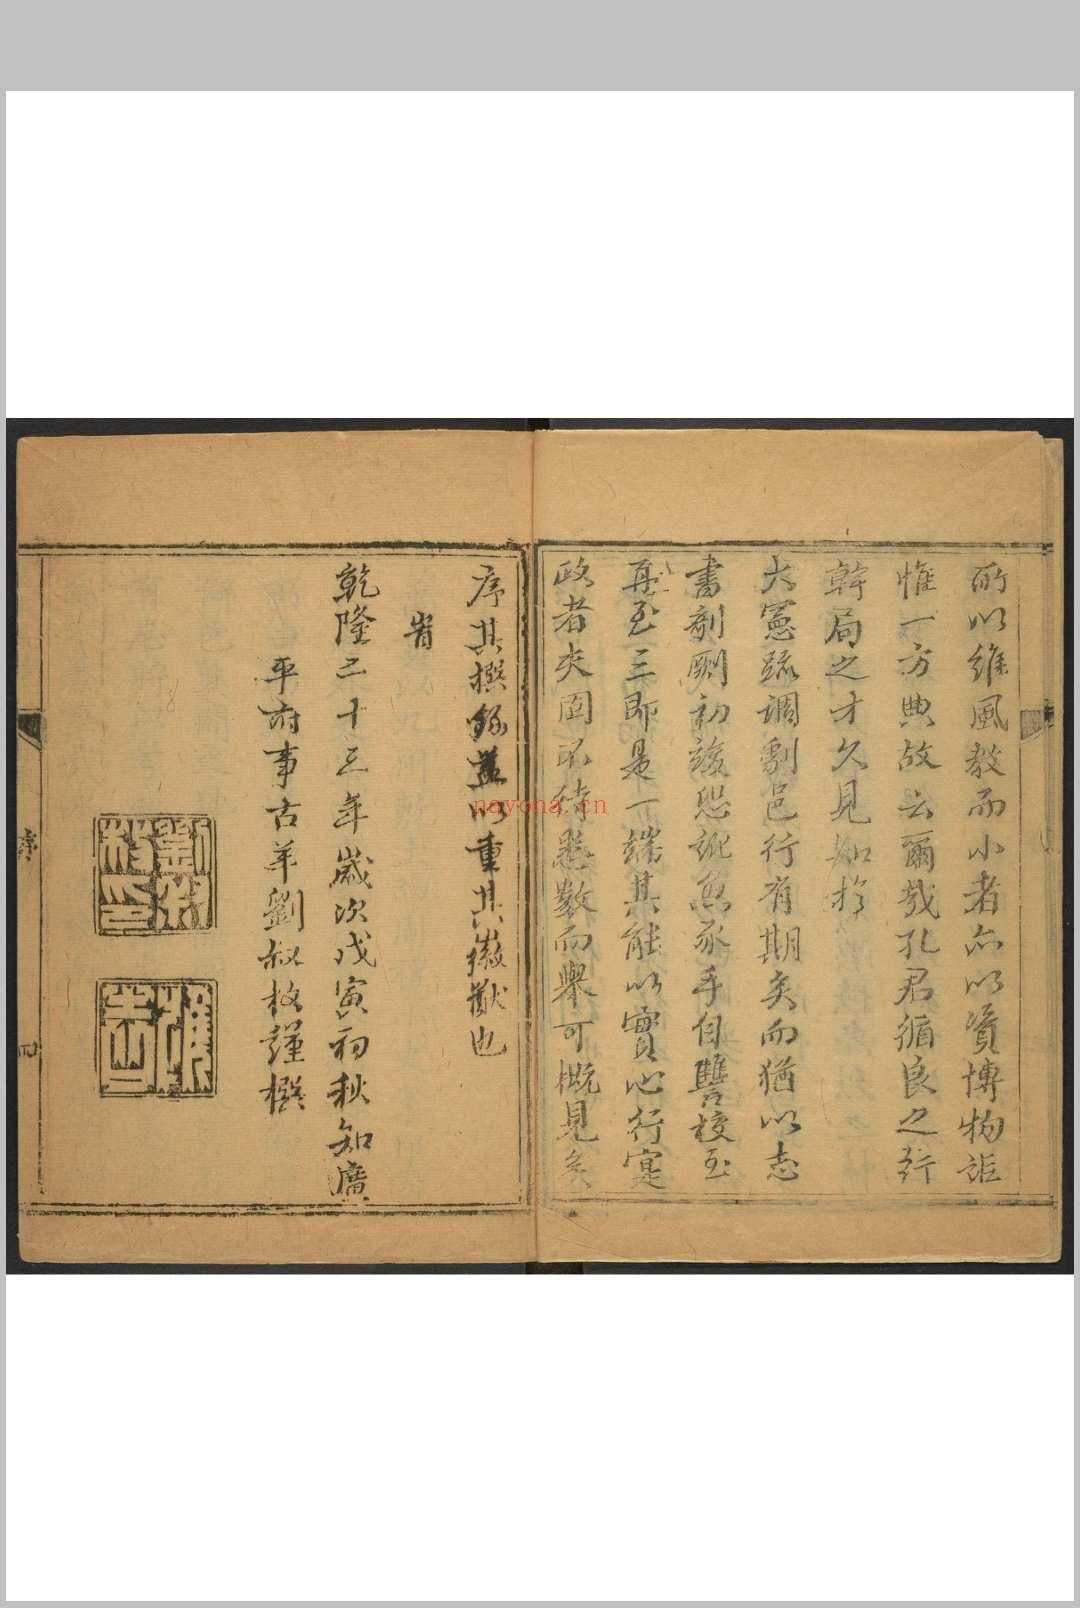 所以維風教而小者亦以資博物詎
惟一方典故云爾哉孔君循良之行
幹局之才久見知於
大憲疏調劇邑行有期矣而猶以志
書剞劂初竣恐訛魚豕手自讐校至
再至三即是一端其能以實心行寔
政者夫固不待悉數而舉可概見矣
序其撰錄蓋以重其徽猷也
旹
乾隆二十三年歲次戊寅初秋知廣
平府事古羊劉叔枚謹撰
序
四
nayona.cn